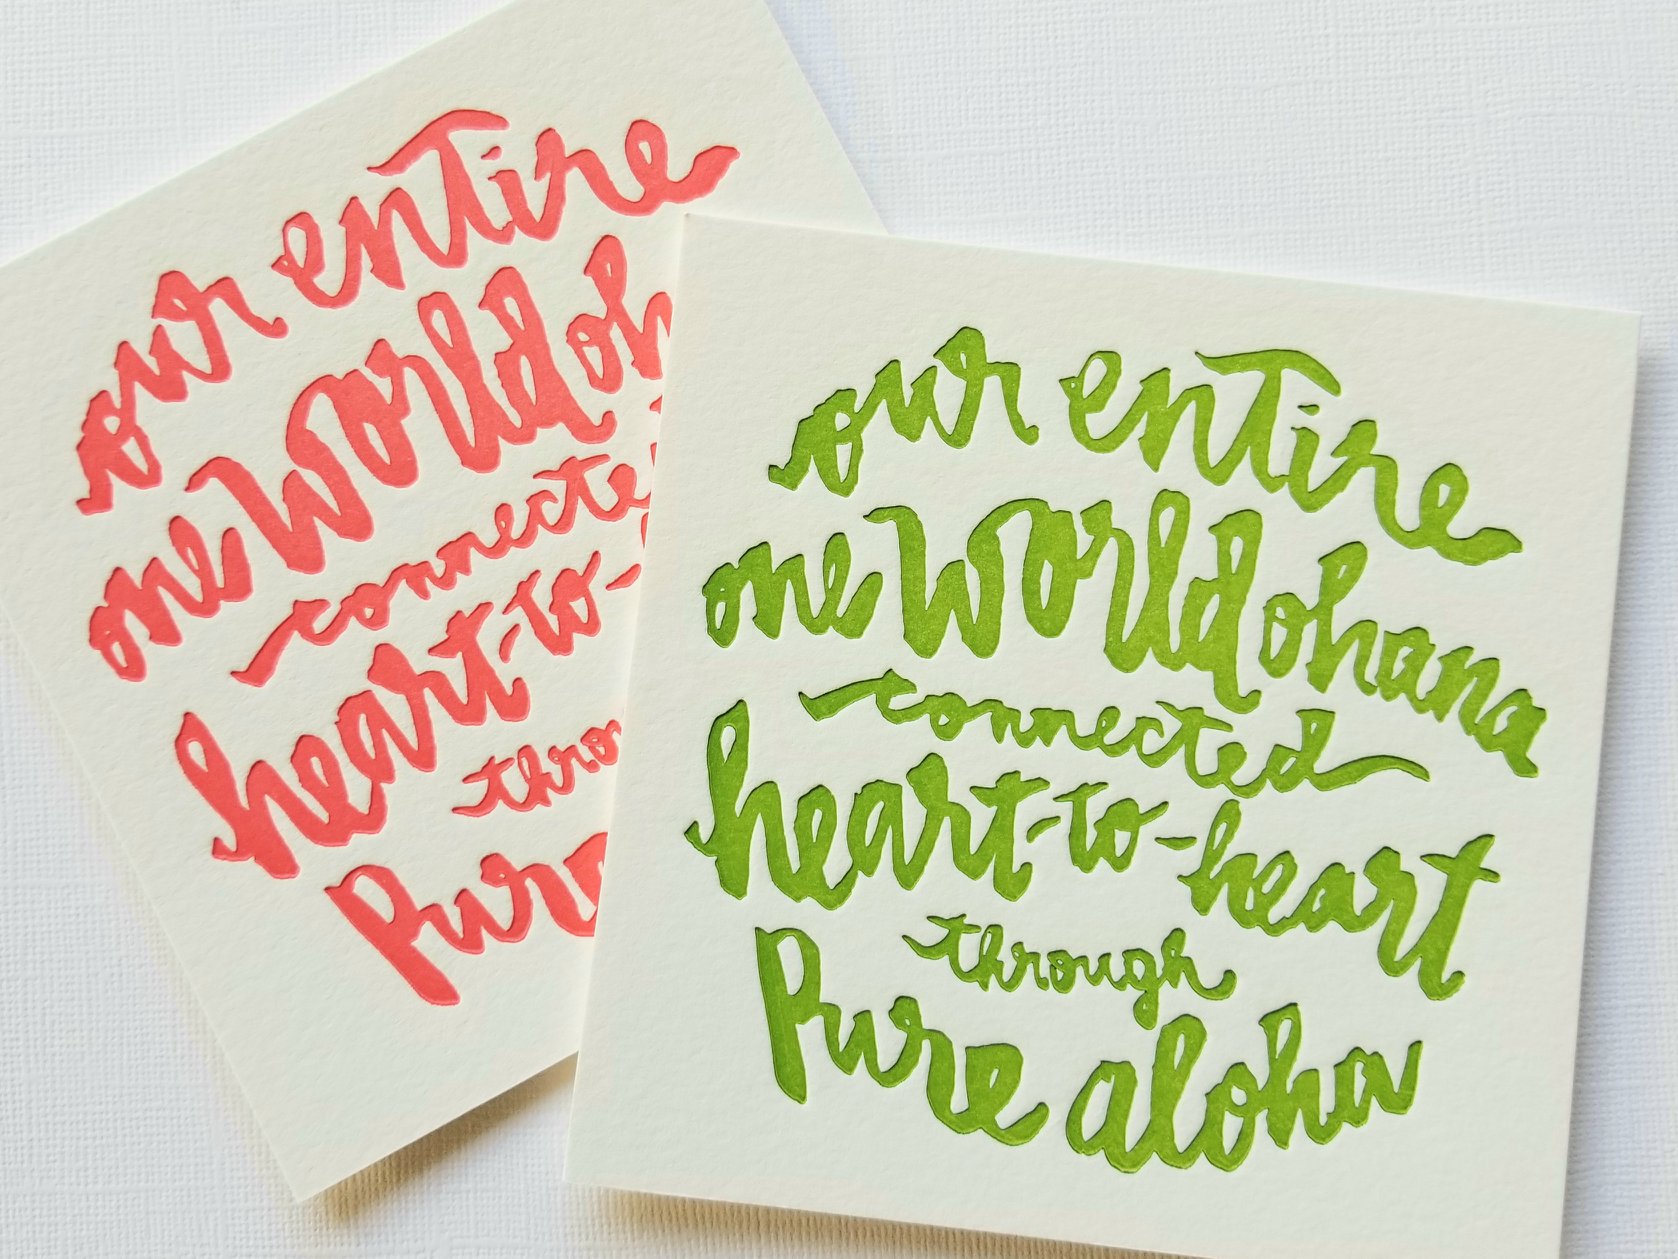 our entire
one world oh
connecte
heart-to-
thro
Pure
our entire
one world ohana
connected
heart-to-heart
through
Pure aloha